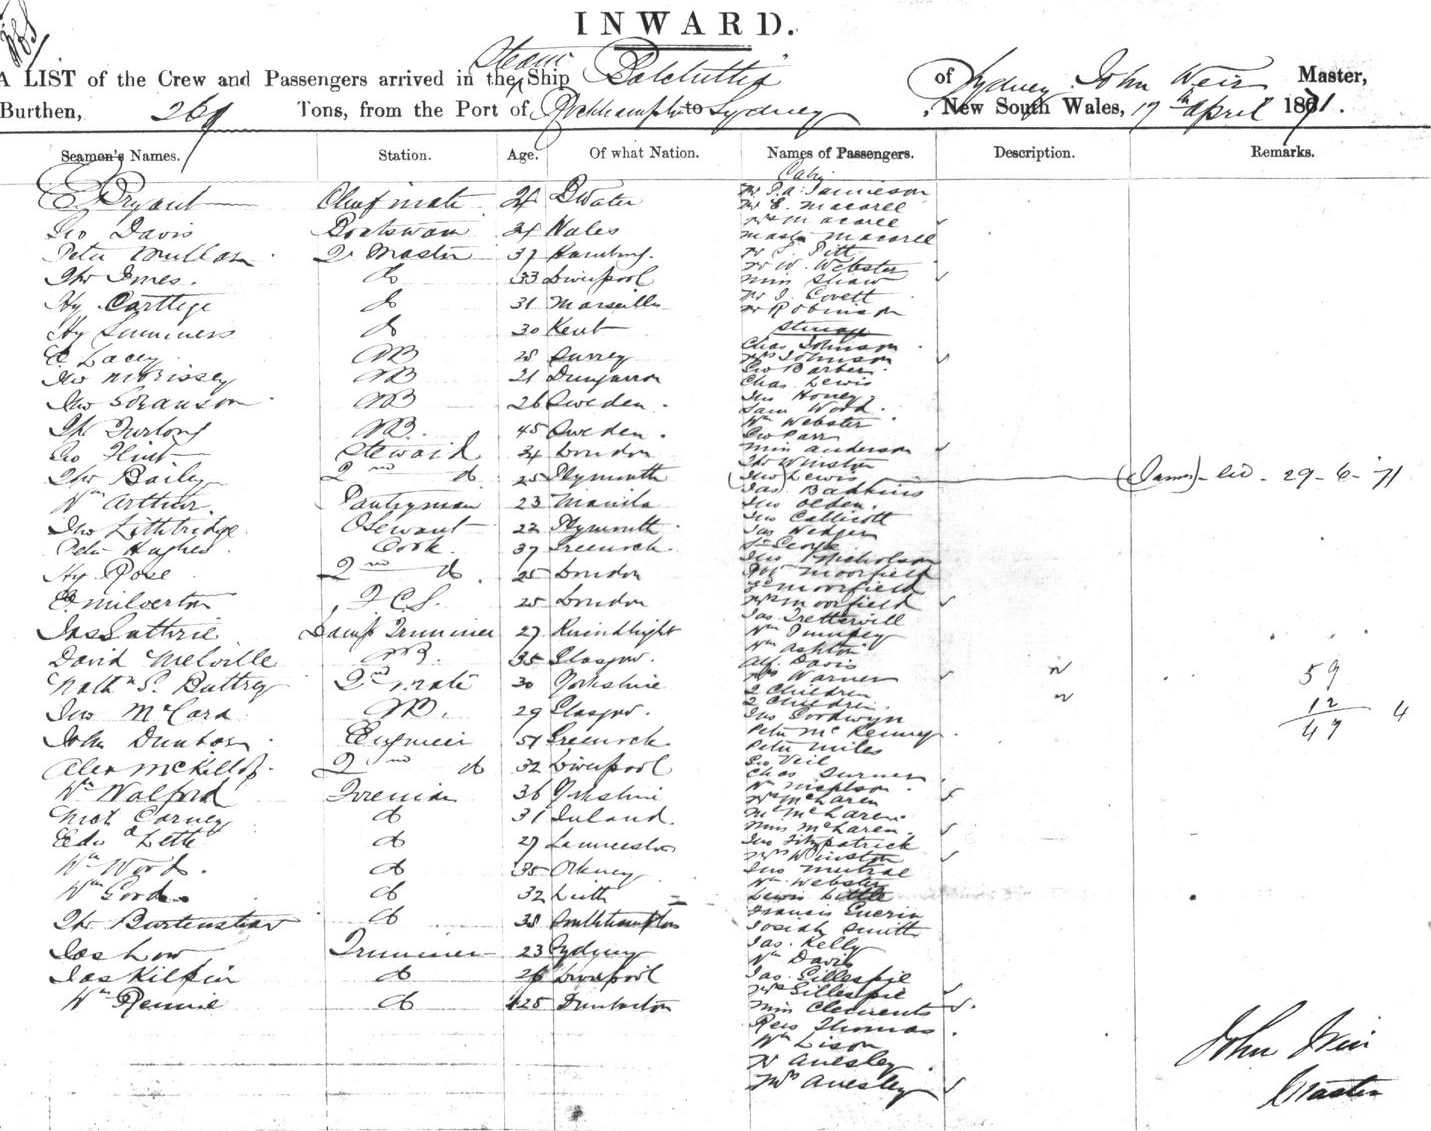 INWARD.
A LIST of the Crew and Passengers arrived in the Steam Ship Balclutha of Sydney, John Weir Master,
Burthen, 269 Tons, from the Port of Rockhampton to Sydney, New South Wales, 17th April 1871.
Seamen's Names. Station. Age. Of what Nation. Names of Passengers. Description. Remarks.
Cabin
E Bryant Chief mate Mr J.A. Jamieson
Geo Davis Boatswain 34 Wales Mrs Macaree
Master Macaree
Peter Mullan Qr Master 37 Hamburg. Mr S. Pitt
Mr W. Webster
Thos Innes. do 33 Liverpool Miss Shaw
Hy. do 31 Marseilles Mr J. Covett
Mr Robinson
Hy Summers do 30 Kent Steerage
Chas Johnson
E Lacey AB 25 Surrey Mrs Johnson
Geo Barber
Jno Morissey AB 21 Dungarvon Chas Lewis
Jno Honey
Jno Soranson AB 26 Sweden. Sam Wood
Wm Webster
Furlong AB. 45 Sweden. Geo Parr
Geo Flint Steward 34 London Miss Anderson
Thos Winston
Thos Baily 2nd do 25 Plymouth (Jno Lewis (James) - 29-6-71
Jas Badkins
Wm Arthur Pantryman 23 Manila Jno Olden.
Jno Lethbridge Plymouth Jno Callicott
Jas Wedgen
Peter Hughes Cook. 37 Greenock. St George
Jno Nicholson
Hy Rose 2nd do 25 London Moorfield
Moorfield
E. Milverton F.C.S. 25 London Mrs Moorfield
Jas Guthrie Lamp Trimmer 27
Wm Ashton
David Melville AB. 35 Glasgow. Alf. Davis
Mrs Warner 59
Nathl S. Buttrey 2nd mate 30 Yorkshire 2 Children
2 Children 12
Jno McCard AB. 29 Glasgow. Jno Goodwyn 47 4
Peter McKenny
John Dunbar Engineer 51 Greenock Peter Miles
Geo Veil
Alex McKillop 2nd do 32 Liverpool Chas Turner
Wm Walford Fireman 36 Yorkshire Mrs McLaren
Nich Carney do 31 Ireland. Mr McLaren
Miss McLaren
Edw Lette do 27 Launceston Jno Fitzpatrick
Mrs Winston
Wm Wood. do 35 Orkney
Wm Webster
Wm Gordon do 32 Leith Lewis Little
Francis Guerin
Thos do 38 Southhampton Josiah Smith
Jas Low Trimmer 23 Sydney Jas. Kelly
Wm Davis
Jas Kilfin do Liverpool Jas. Gillespie
Mrs Gillespie
Wm Rennie do 25 Dumbarton Miss Clements
Rees Thomas
Wm Lison
Mr Anesley
Mrs Anesley
John Weir
Master